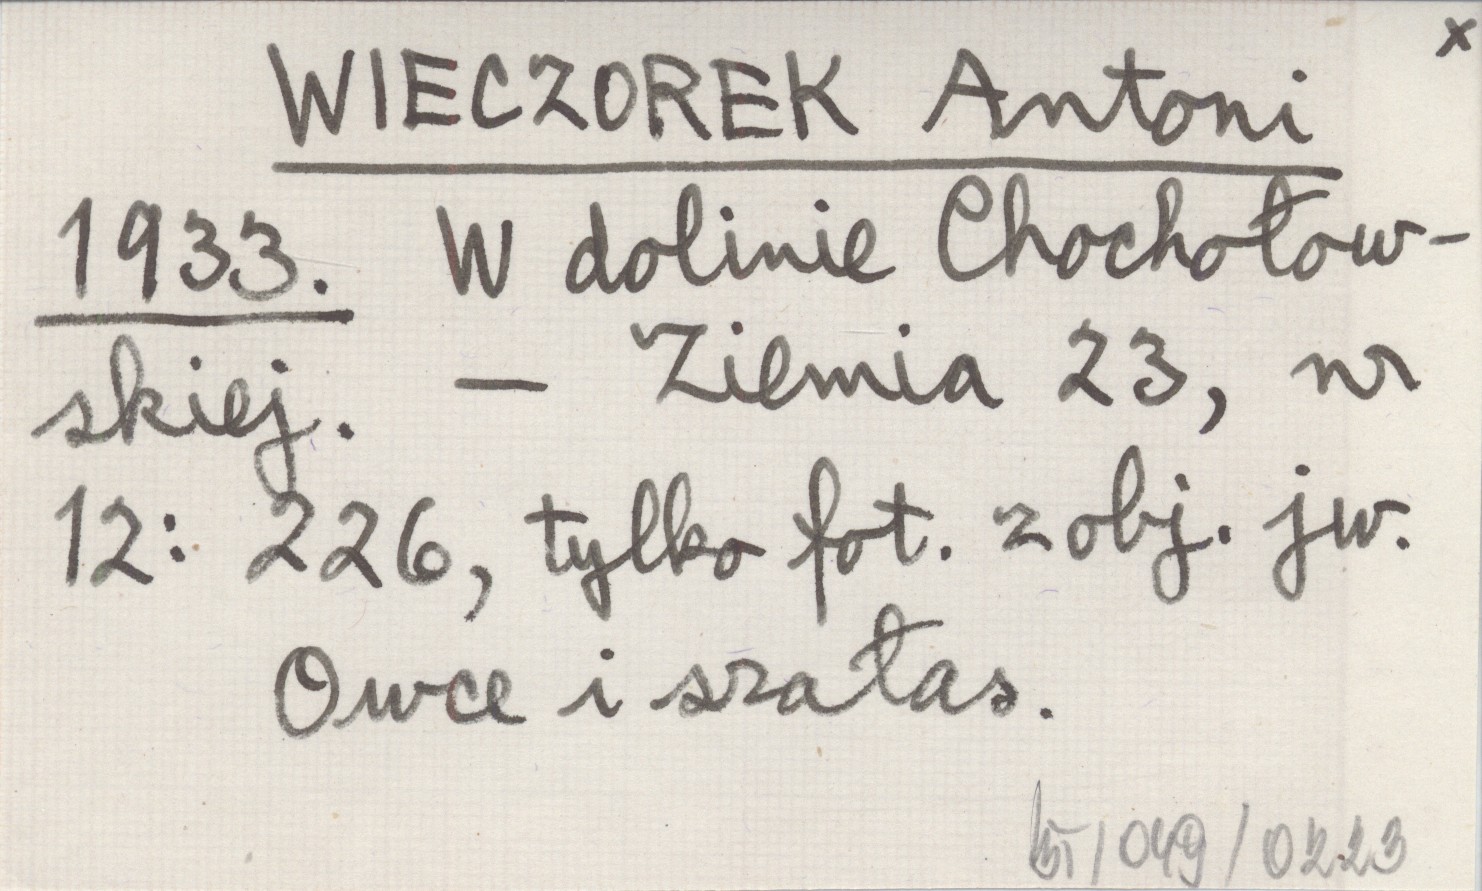 x
WIECZOREK Antoni
1933. W dolinie Chochołow-
skiej. — Ziemia 23, nr
12: 226, tylko fot. z obj. jw.
Owce i szałas.
/049/0223